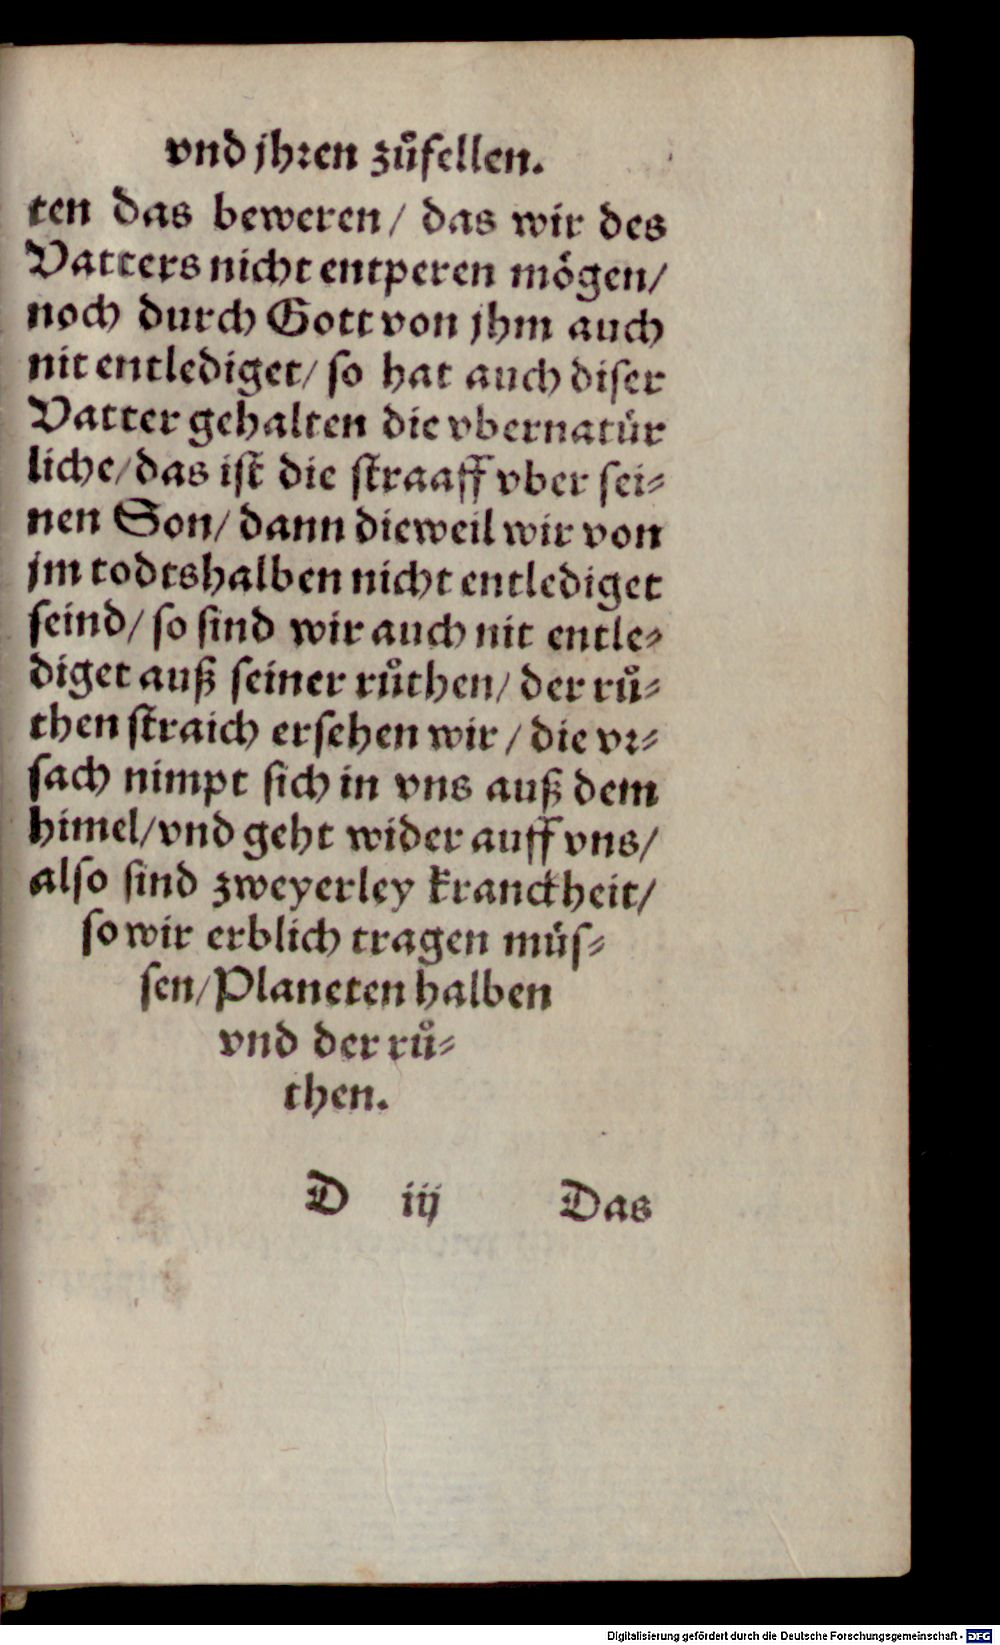 vnd jhren zůfellen.
ten das beweren/ das wir des
Vatters nicht entperen mögen/
noch durch Gott von jhm auch
nit entlediget/ so hat auch diser
Vatter gehalten die vbernatür
liche/das ist die straaff vber sei⸗
nen Son/ dann dieweil wir von
jm todtshalben nicht entlediget
seind/ so sind wir auch nit entle⸗
diget auß seiner růthen/ der rů⸗
then straich ersehen wir / die vr⸗
sach nimpt sich in vns auß dem
himel/vnd geht wider auff vns/
also sind zweyerley kranckheit/
so wir erblich tragen müs⸗
sen/Planeten halben
vnd der rů⸗
then.
D iij Das
Digitalisierung gefördert durch die Deutsche Forschungsgemeinschaft - DFG